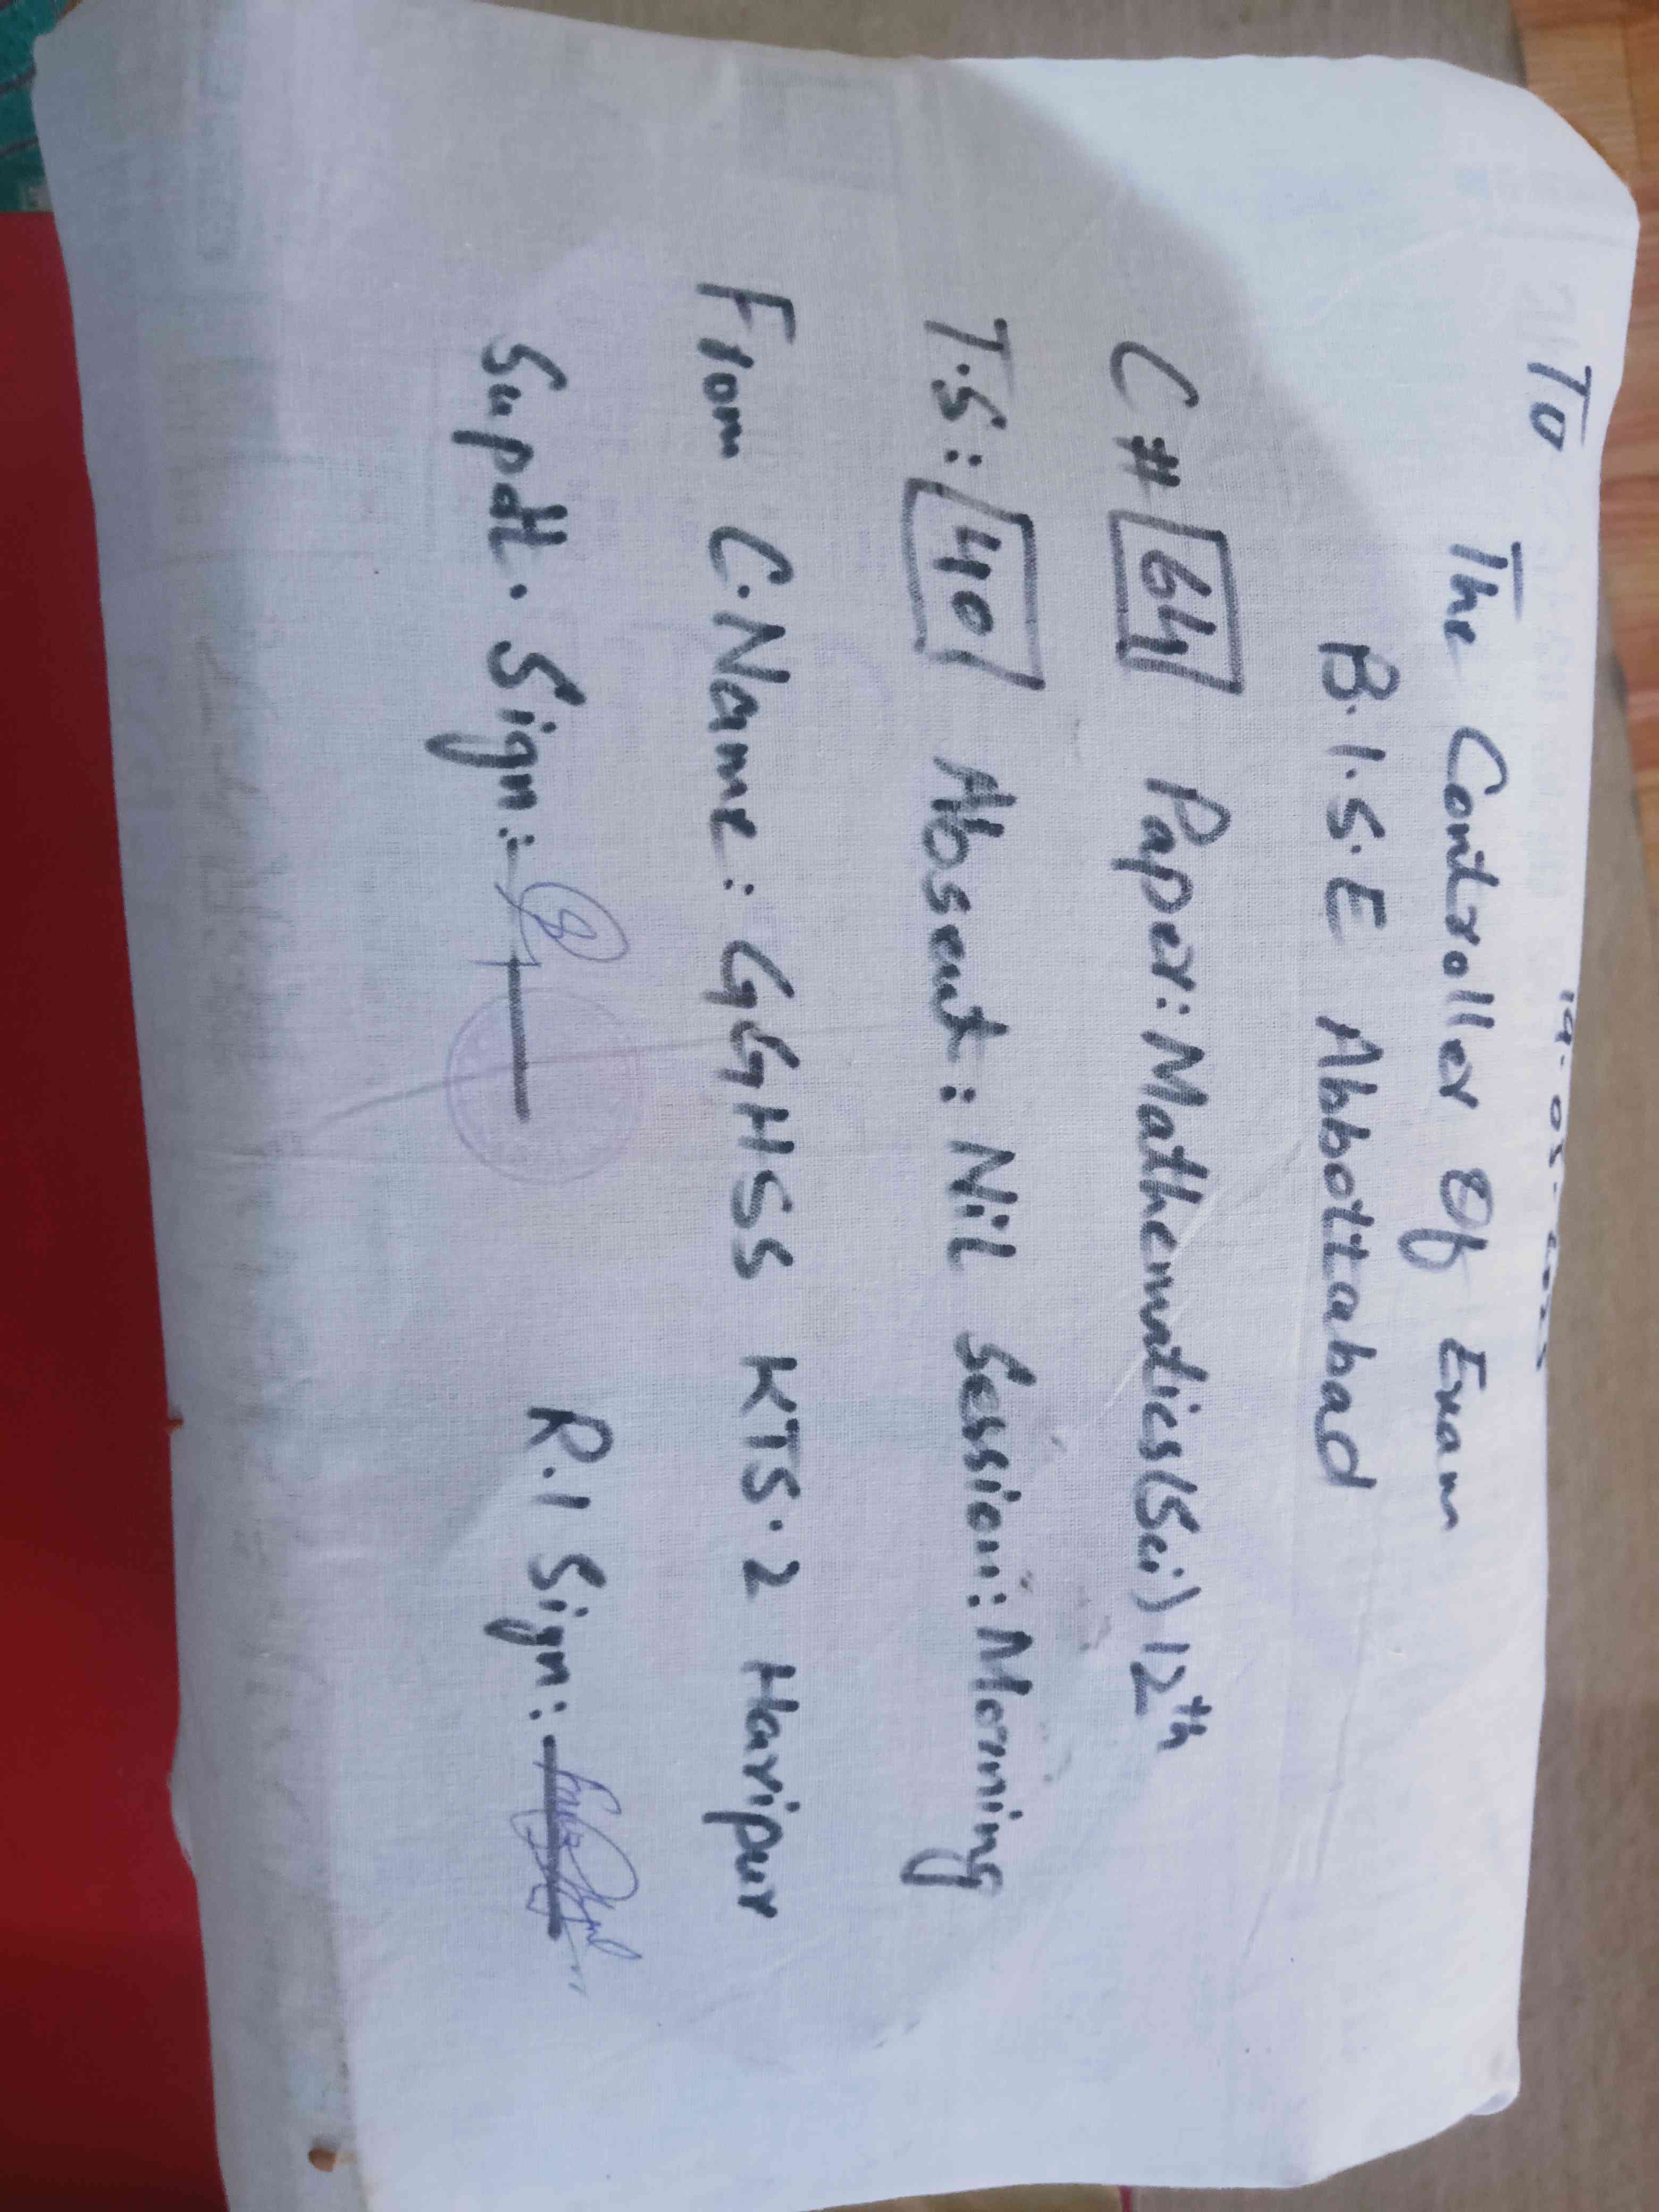 To
The Controller Of Exam
B.I.S.E Abbottabad
C# 64 Paper: Mathematics(Sci) 12th
T.S: 40 Absent: Nil Session: Morning
From C.Name: GGHSS KTS.2 Haripur
Supdt. Sign: R.I Sign: